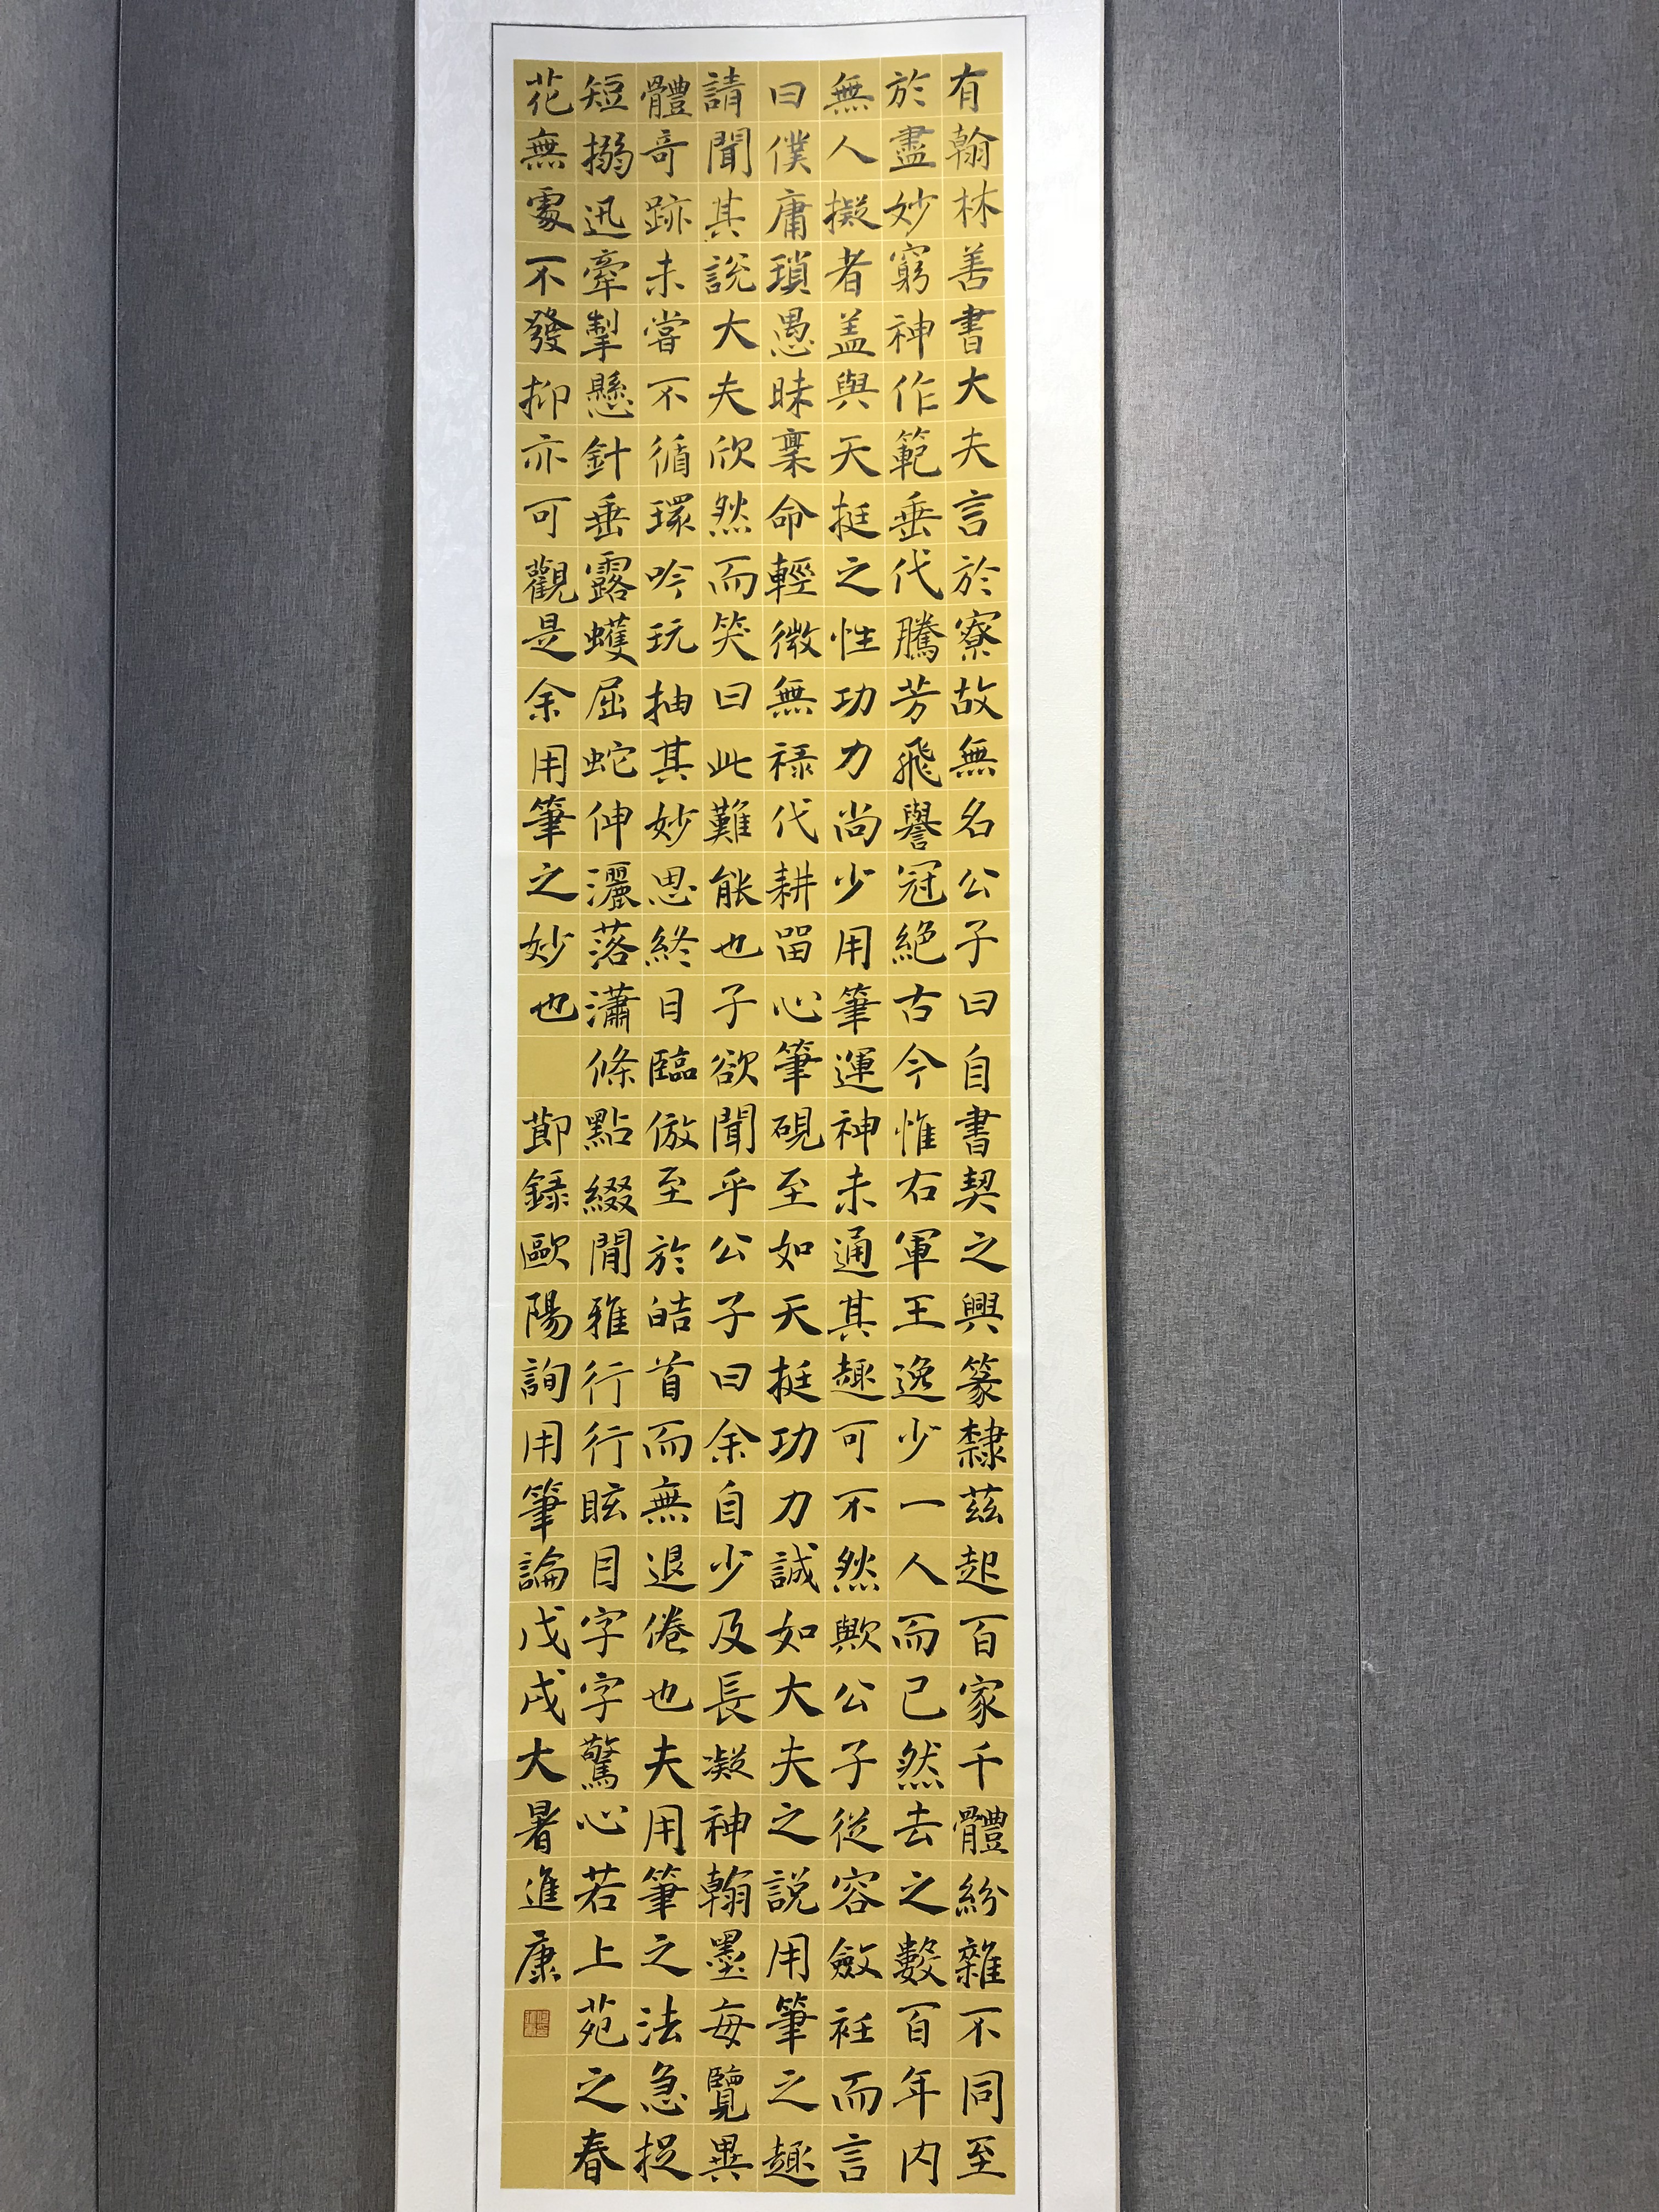 有翰林善書大夫言於寮故無名公子曰自書契之興篆隸茲起百家千體紛雜不同至
於盡妙窮神作範垂代騰芳飛譽冠絕古今惟右軍王逸少一人而已然去之數百年內
無人擬者盖與天挺之性功力尚少用筆運神未通其趣可不然歟公子從容斂衽而言
曰僕庸瑣愚昧稟命輕微無祿代耕留心筆硯至如天挺功力誠如大夫之說用筆之趣
請聞其說大夫欣然而笑曰此難能也子欲聞乎公子曰余自少及長凝神翰墨每覽異
體奇跡未嘗不循環吟玩抽其妙思終日臨倣至於皓首而無退倦也夫用筆之法急捉
短搦迅牽掣懸針垂露蠖屈蛇伸灑落瀟條點綴閒雅行行眩目字字驚心若上苑之春
花無處不發抑亦可觀是余用筆之妙也 節錄歐陽詢用筆論戊戌大暑進康